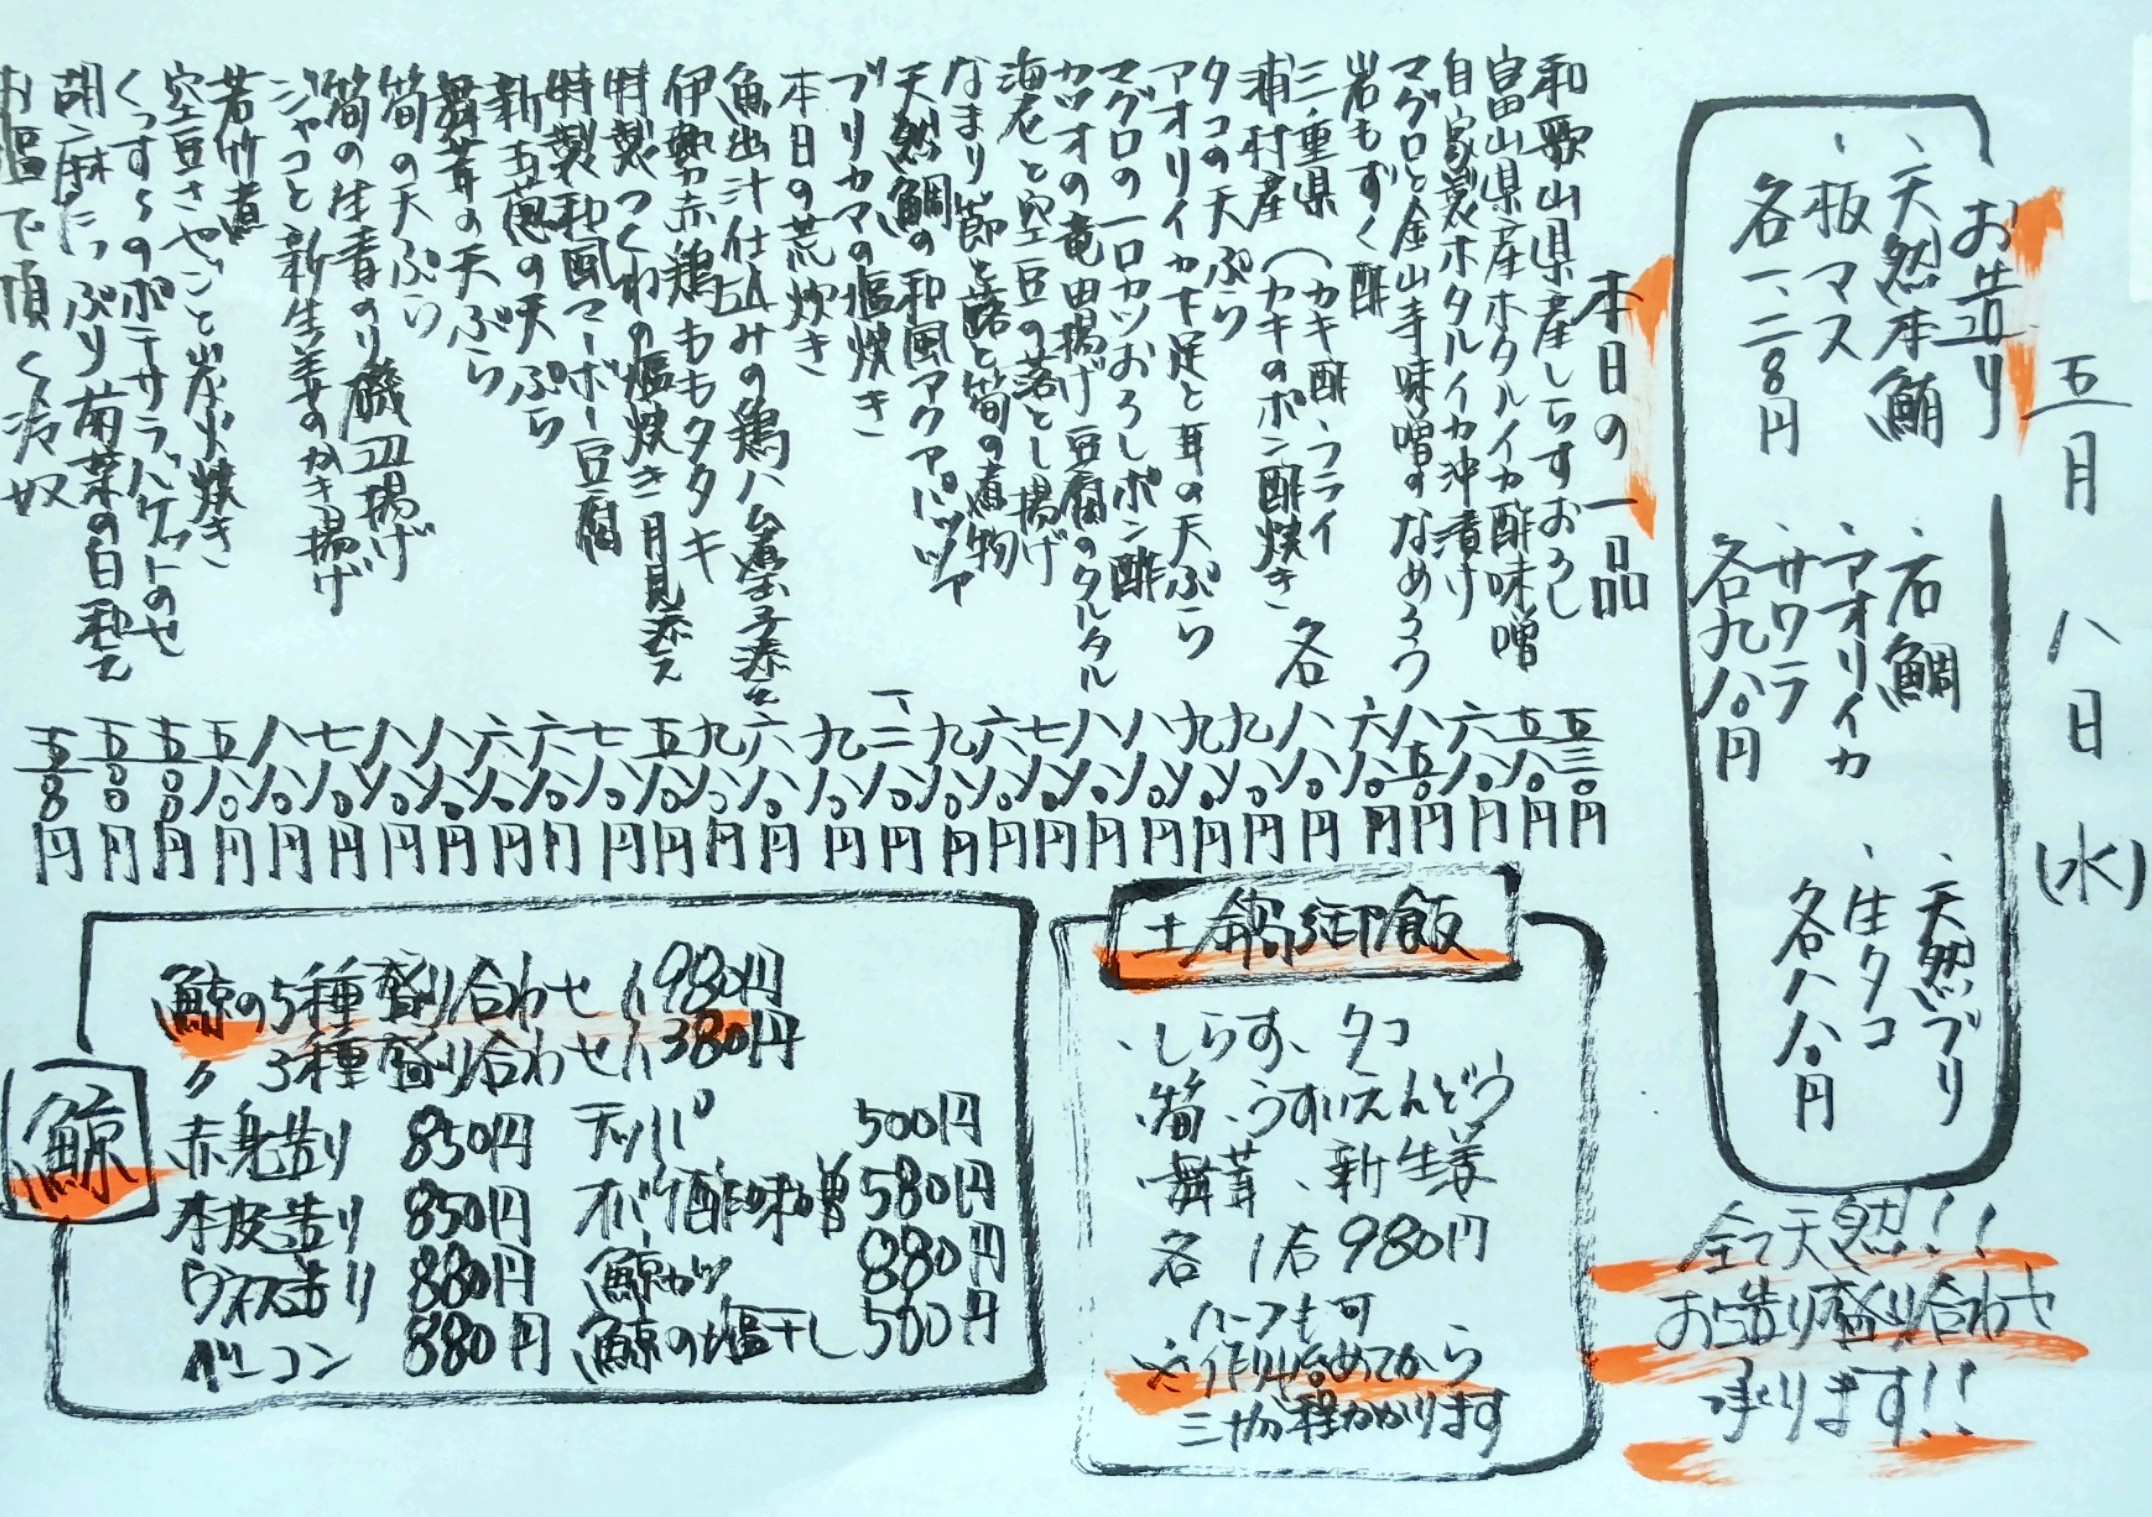 五月八日(水)
お造り
、天然本鮪
、板マス
各一、二八〇円
、石鯛
、アオリイカ
、サワラ
各九八〇円
、天然ブリ
、生タコ
各八八〇円
全て天然!!
お造り盛り合わせ
承ります!!
本日の一品
和歌山県産しらすおろし 五三〇円
富山県産ホタルイカ酢味噌 五八〇円
自家製ホタルイカ沖漬け 六八〇円
マグロと金山寺味噌のなめろう 八五〇円
岩もずく酢 六八〇円
三重県 (カキ酢、フライ
浦村産 (カキのポン酢焼き 各 八八〇円
タコの天ぷら 九八〇円
アオリイカ下足と耳の天ぷら 九八〇円
マグロの一口カツおろしポン酢 八八〇円
カツオの竜田揚げ豆腐のタルタル 八八〇円
海老と空豆の落とし揚げ 七八〇円
なまり節と蕗と筍の煮物 六八〇円
天然鯛の和風アクアパッツァ 九八〇円
ブリカマの塩焼き 一、二八〇円
本日の荒炊き 九八〇円
魚出汁仕込みの鶏ハム煮玉子添え 六八〇円
伊勢赤鶏ももタタキ 九八〇円
特製つくねの塩焼き月見添え 五八〇円
特製和風マーボー豆腐 七八〇円
新玉葱の天ぷら 六八〇円
舞茸の天ぷら 六八〇円
筍の天ぷら 八八〇円
筍の生青のり磯辺揚げ 八八〇円
ジャコと新生姜のかき揚げ 七八〇円
若竹煮 八八〇円
空豆さやごと炭火焼き 五八〇円
くっすぅのポテサラバケットのせ 五〇〇円
胡麻たっぷり菊菜の白和え 五〇〇円
お塩で頂く冷奴 五〇〇円
土鍋御飯
、しらす、タコ
、筍、うすいえんどう
、舞茸、新生姜
各 1合 980円
ハーフも可
※作り始めてから
三十分程かかります
鯨
鯨の5種盛り合わせ 1,980円
〃 3種盛り合わせ 1,380円
赤身造り 850円
本皮造り 850円
ウネス造り 880円
ベーコン 880円
テッパ 500円
オバケ酢味噌 580円
鯨カツ 880円
鯨の塩干し 500円